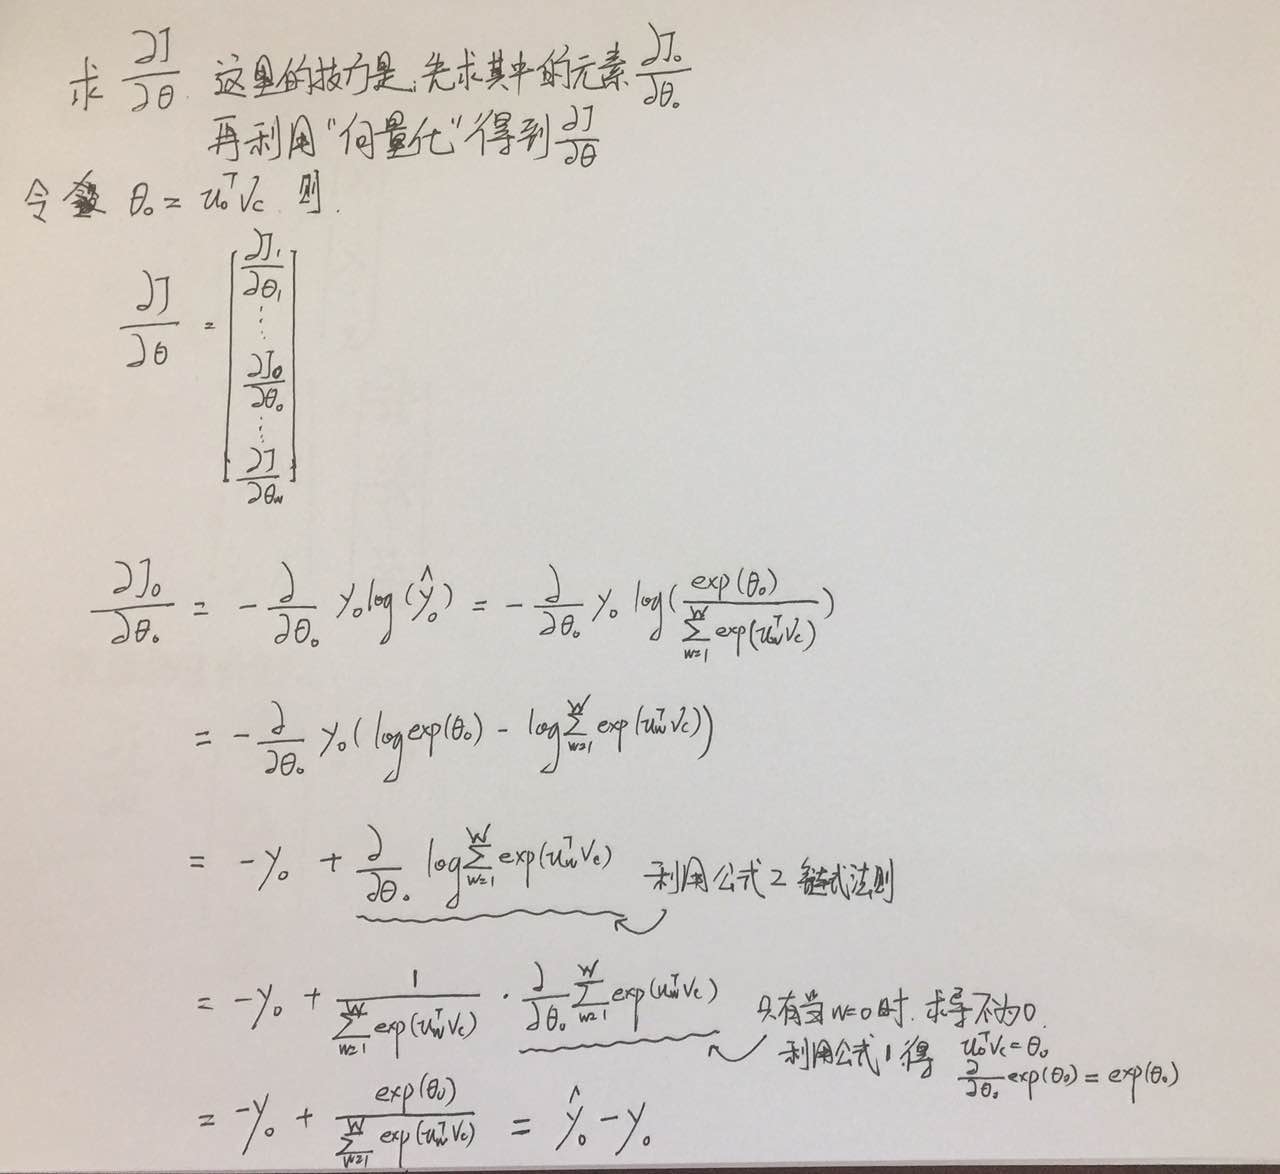 求 ∂J/∂θ 这里的技巧是,先求其中的元素 ∂J₀/∂θ₀
再利用“向量化”得到 ∂J/∂θ
令 θ₀ = u₀ᵀVc 则.
∂J/∂θ = [∂J₁/∂θ₁ ⋮ ∂J₀/∂θ₀ ⋮ ∂J/∂θw]
∂J₀/∂θ₀ = -∂/∂θ₀ y₀log(ŷ₀) = -∂/∂θ₀ y₀ log(exp(θ₀)/∑_{w=1}^{W} exp(uwᵀVc))
= -∂/∂θ₀ y₀(log exp(θ₀) - log∑_{w=1}^{W} exp(uwᵀVc))
= -y₀ + ∂/∂θ₀ log∑_{w=1}^{W} exp(uwᵀVc) 利用公式2 链式法则
= -y₀ + 1/∑_{w=1}^{W} exp(uwᵀVc) · ∂/∂θ₀ ∑_{w=1}^{W} exp(uwᵀVc) 只有当w=0时.求导不为0.
利用公式1得 u₀ᵀVc=θ₀
∂/∂θ₀ exp(θ₀) = exp(θ₀)
= -y₀ + exp(θ₀)/∑_{w=1}^{W} exp(uwᵀVc) = ŷ₀ - y₀